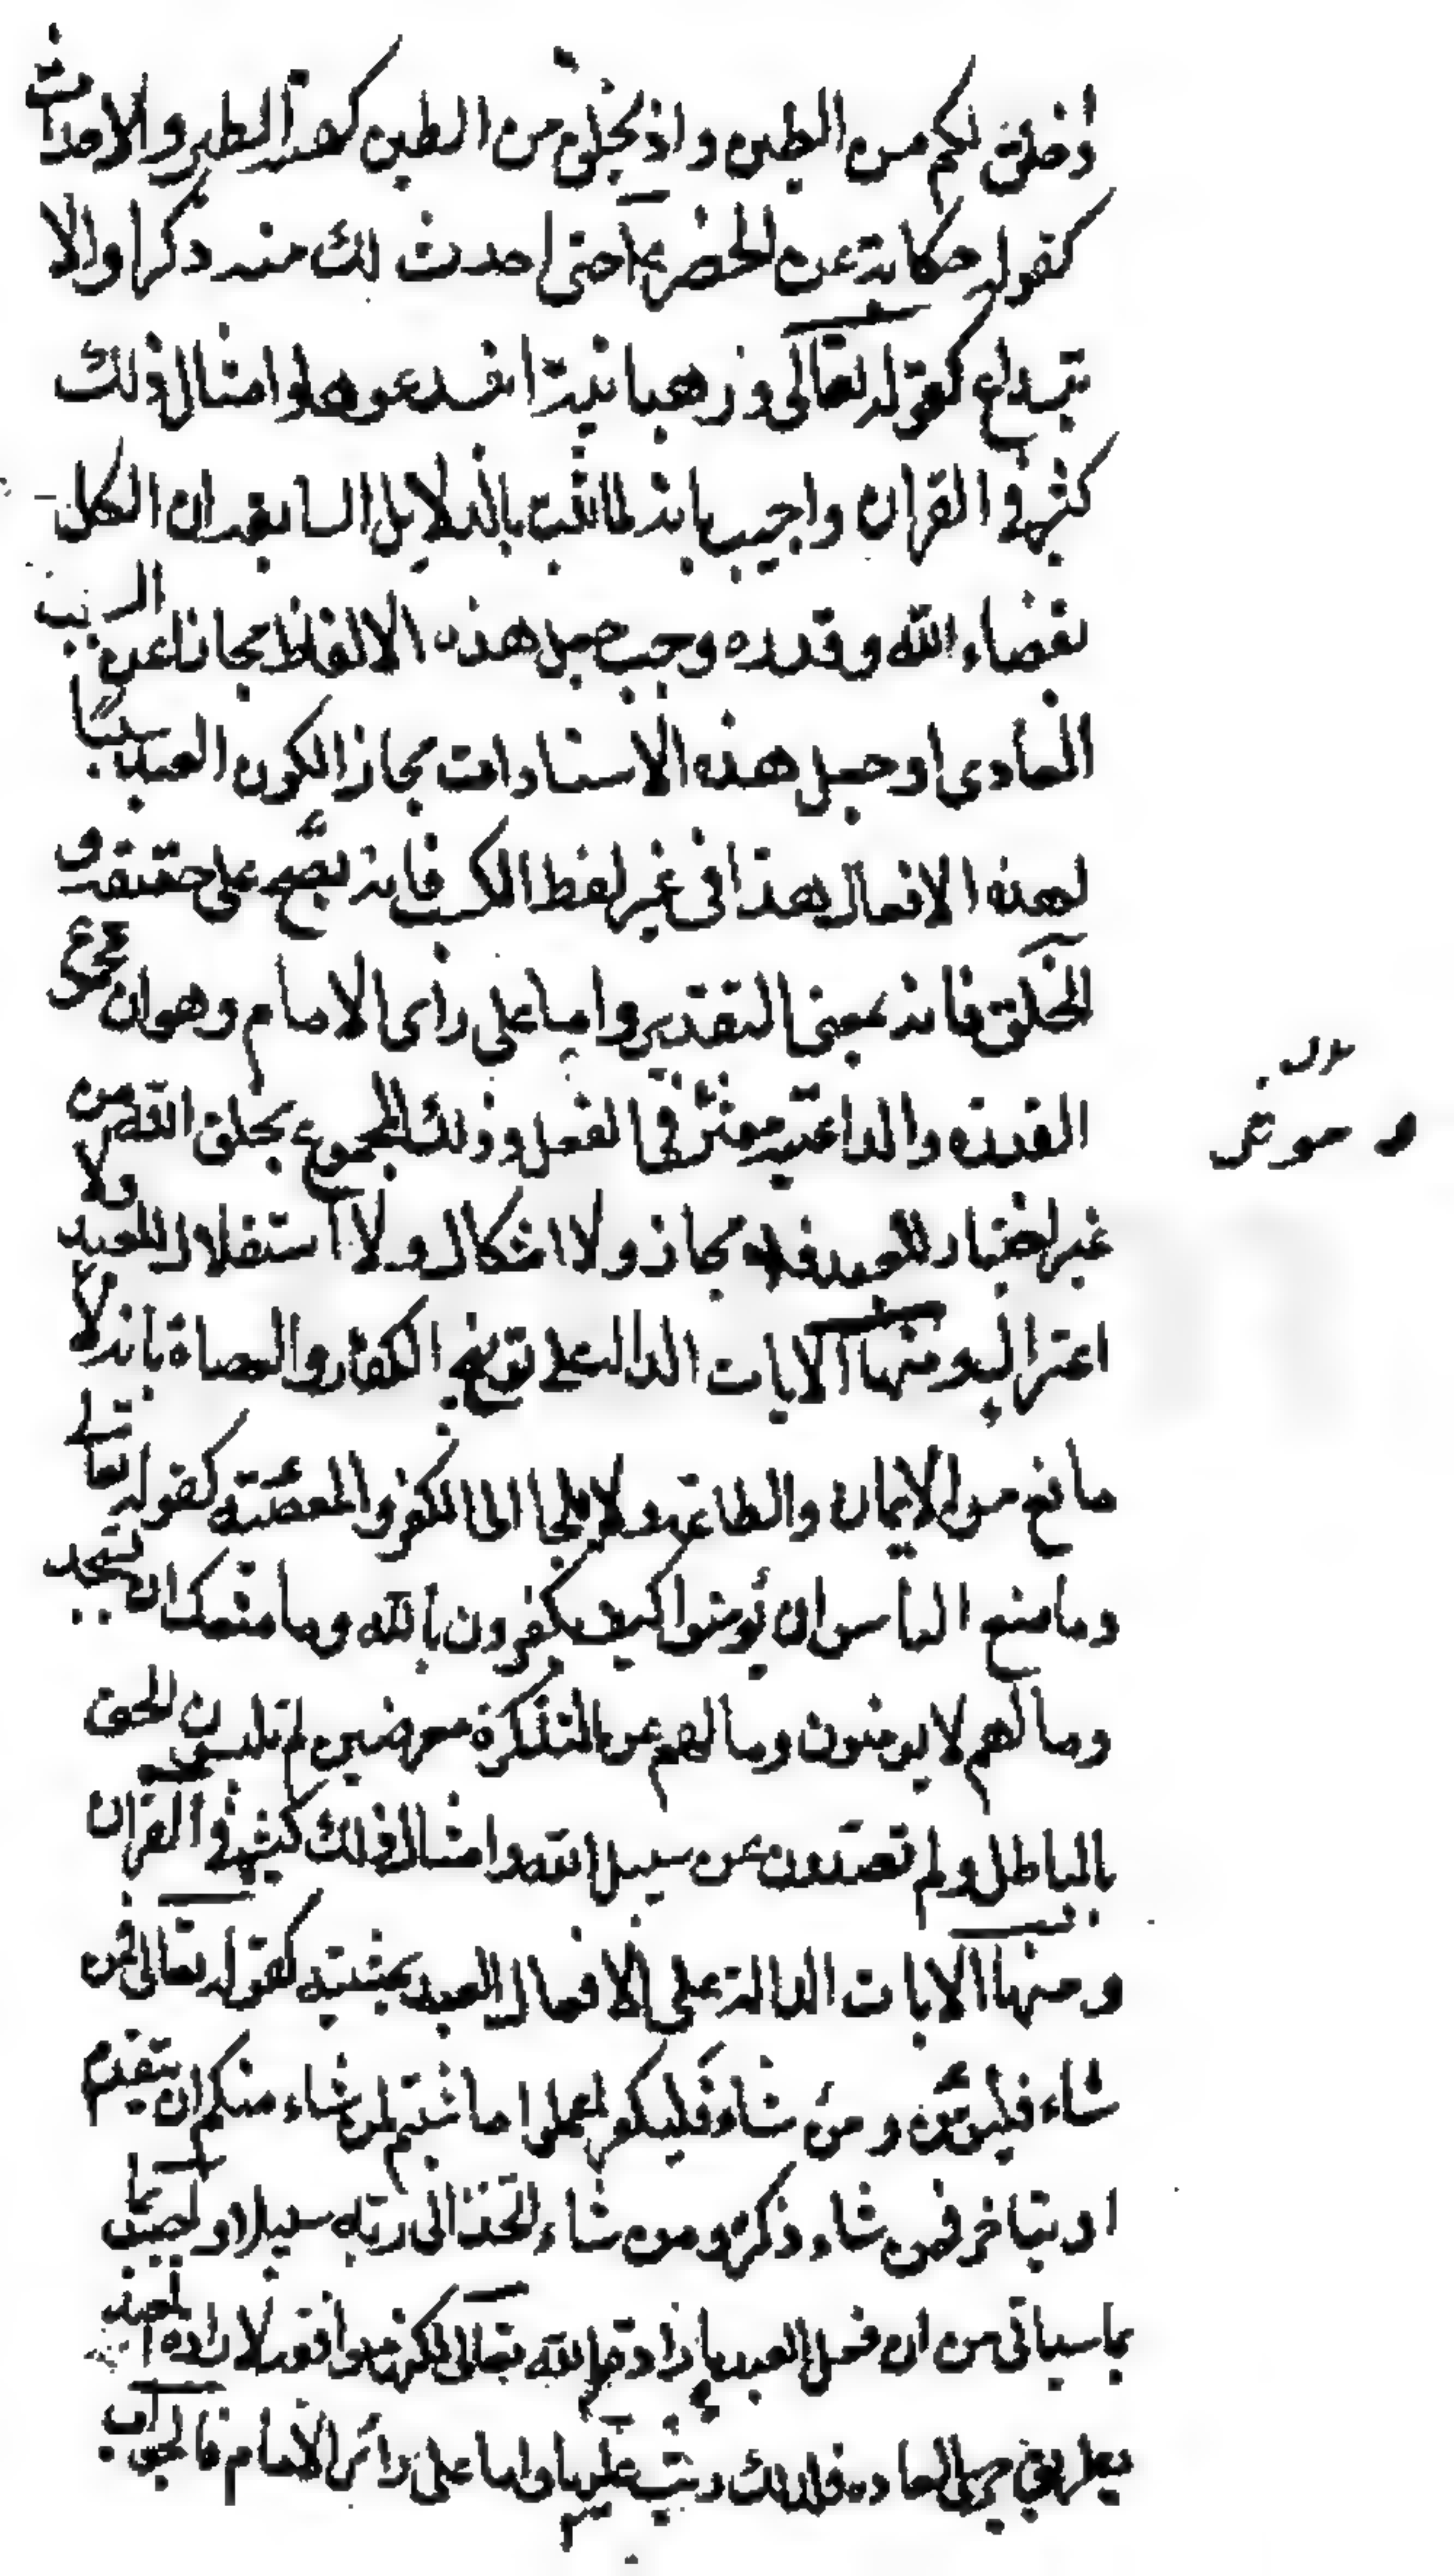 أخلق لكم من الطين واذ تخلق من الطين كهيئة الطير والاحداث
كقوله حكاية عن الخضر عم حتى احدث لك منه ذكرا والا
بتداع كقوله تعالى ورهبانية ابتدعوها وامثال ذلك
كثيرة في القران واجيب بانه لما ثبت بالدلايل السابقة ان الكل
بقضاء الله وقدره وجب جعل هذه الالفاظ مجازا عن السبب
العادي او جعل هذه الاسنادات مجازا لكون العبد سببا
لهذه الافعال هذا في غير لفظ الكسب فانه يصح على حقيقته و
الخلق فانه بمعنى التقدير واما على رأى الامام وهو ان مجموع
القدرة والداعية مؤثر في الفعل وذلك المجموع بخلق الله من
غير اختيار للعبد فلا مجاز ولا اشكال ولا استقلال للعبد ولا
اعتزال ومنها الايات الدالة على توبيخ الكفار والعصاة بانه لا
مانع من الايمان والطاعة ولا ملجا الى الكفر والمعصية كقوله تعالى
وما منع الناس ان يؤمنوا كيف تكفرون بالله وما منعك ان تسجد
وما لهم لا يؤمنون وما لهم عن التذكرة معرضين لم تلبسون الحق
بالباطل ولم تصدون عن سبيل الله وامثال ذلك كثيرة في القران
ومنها الايات الدالة على الافعال العبد بمشيته كقوله تعالى فمن
شاء فليؤمن ومن شاء فليكفر اعملوا ما شئتم لمن شاء منكم ان يتقدم
او يتاخر فمن شاء ذكره ومن شاء اتخذ الى ربه سبيلا واجيب
بما سياتي من ان فعل العبد بارادة الله تعالى لكن موافقة لارادة العبد
بطريق جرى العادة فلذلك رتب عليها واما على رأى الامام فالجواب